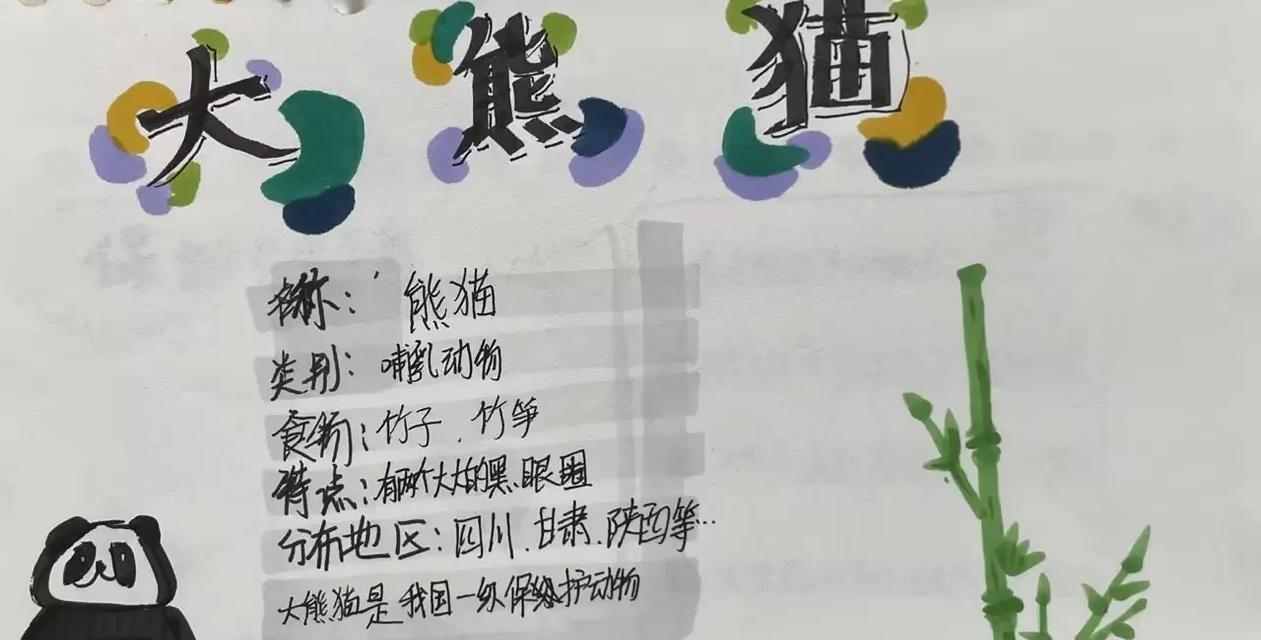 大熊猫
名称：熊猫
类别：哺乳动物
食物：竹子、竹笋
特点：有两个大大的黑眼圈
分布地区：四川、甘肃、陕西等…
大熊猫是我国一级保护动物